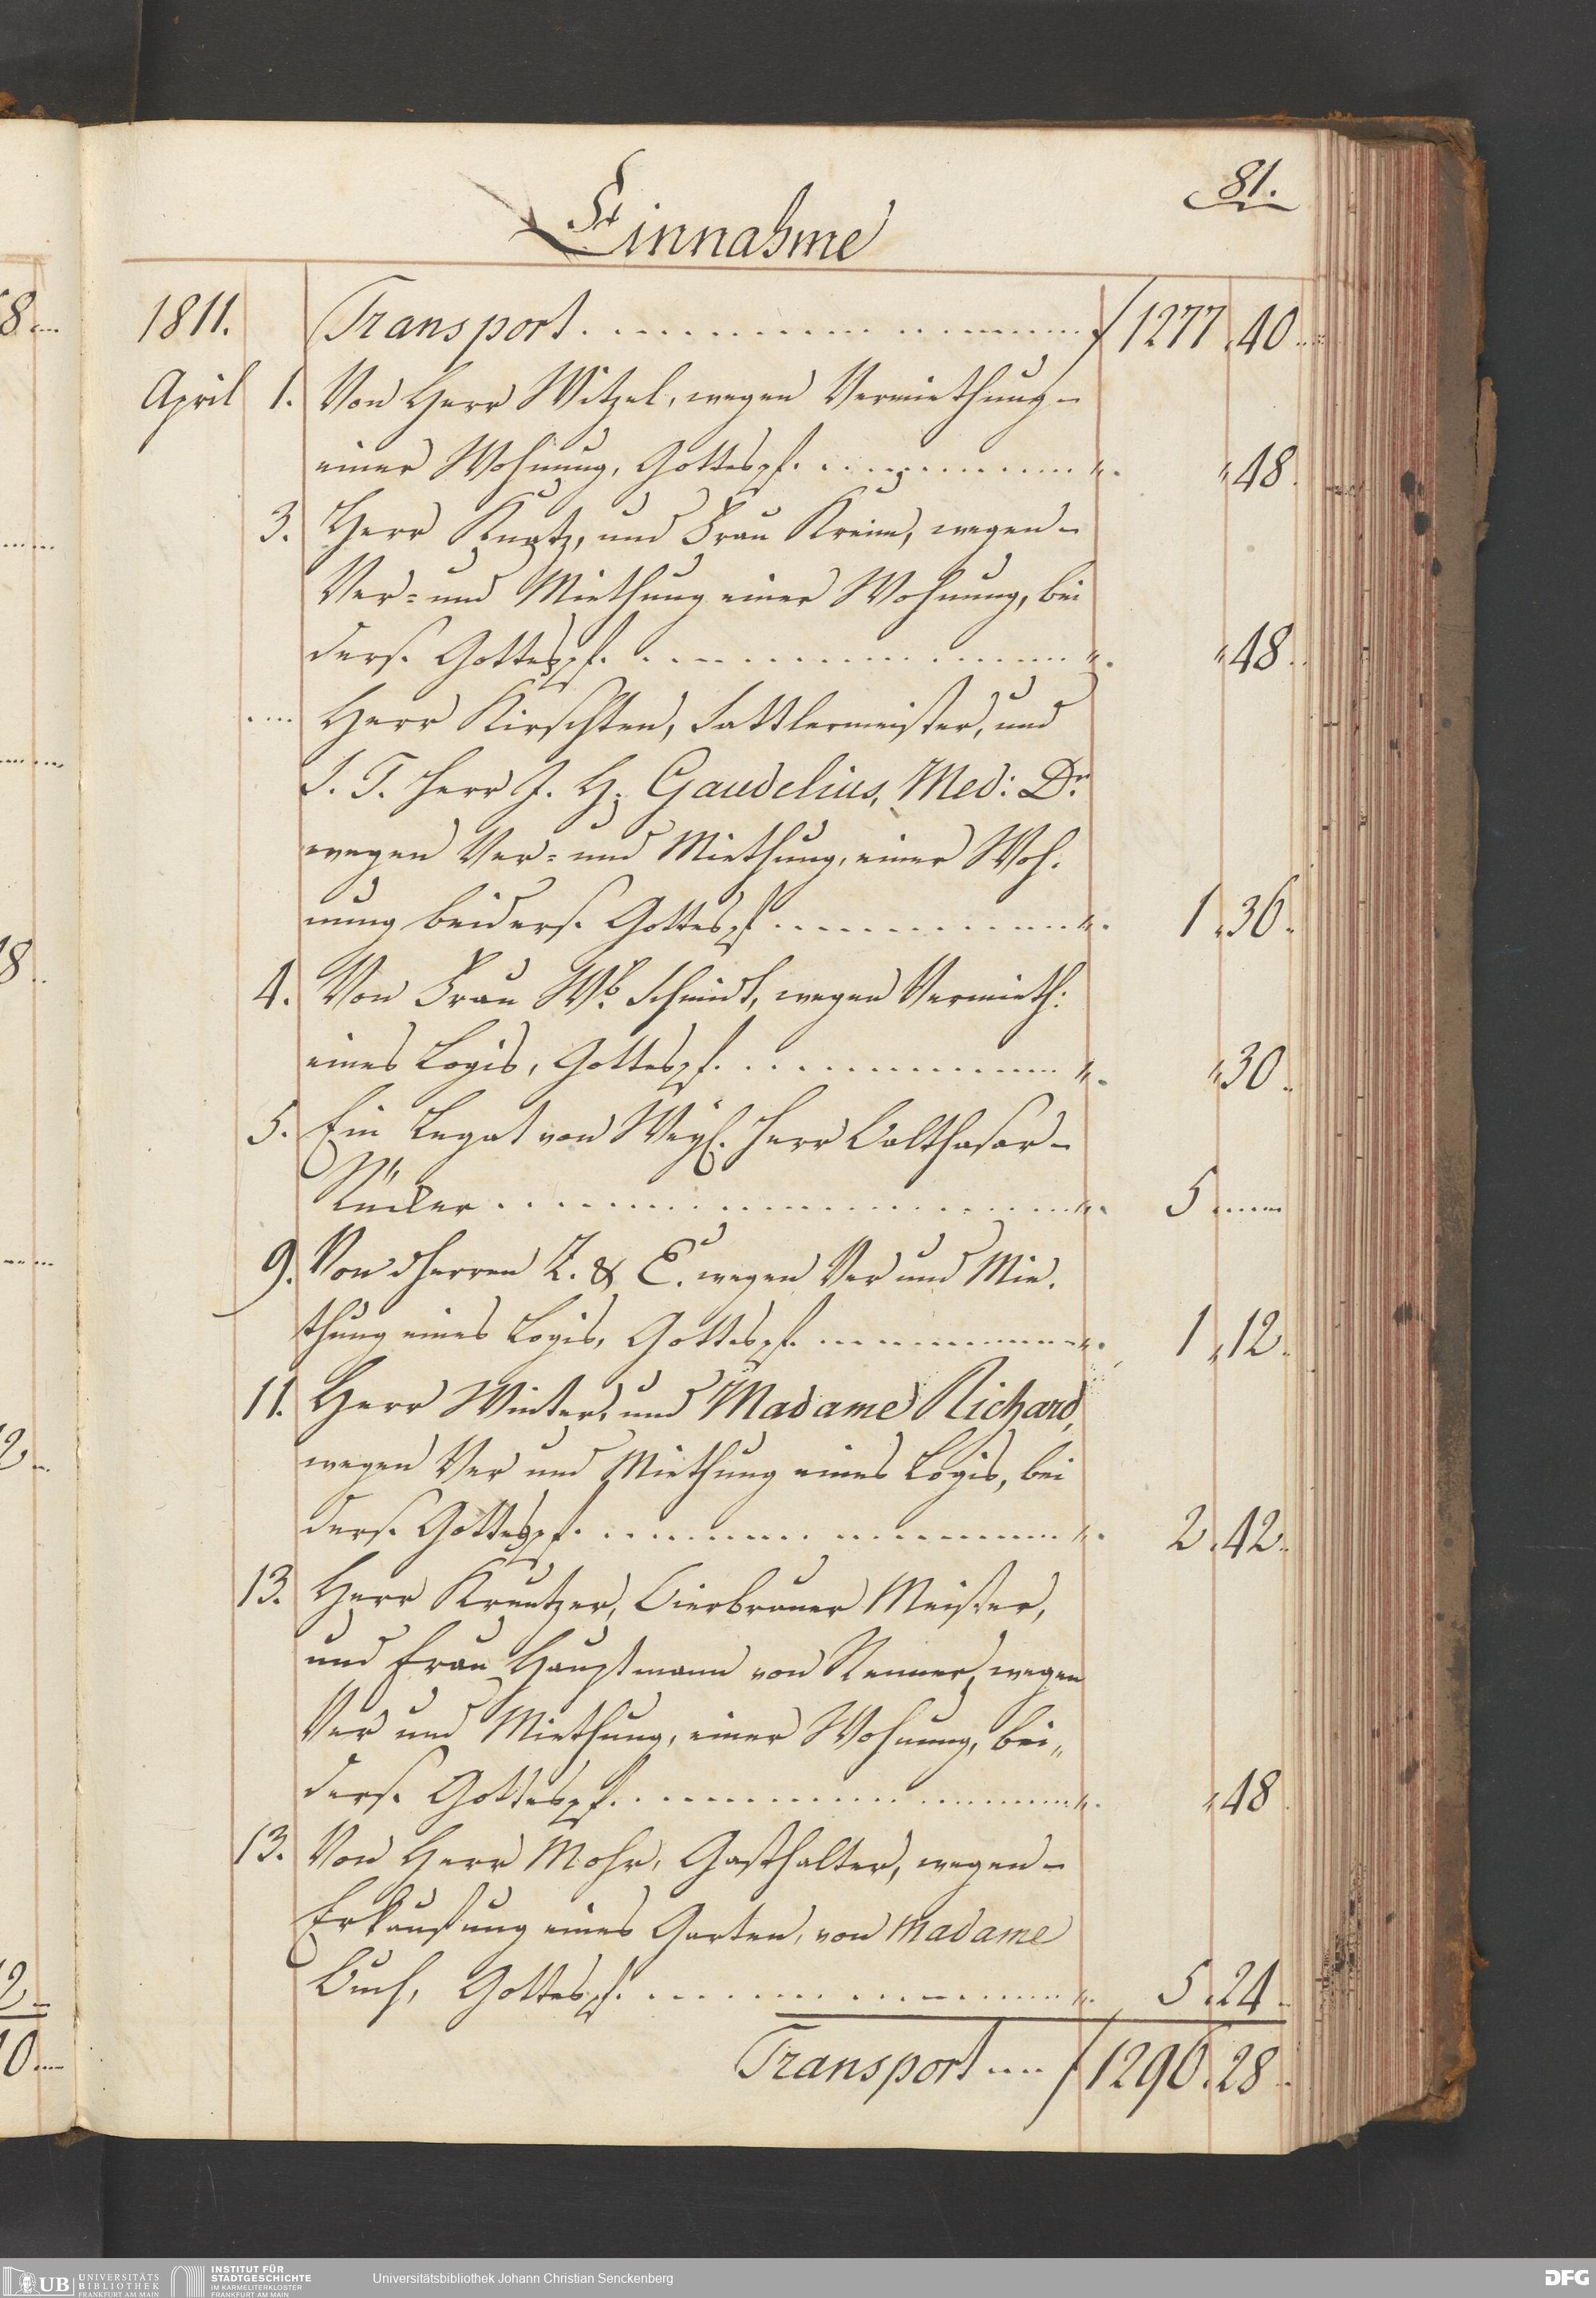 81.
Einnahme
1811. Transport . . . . . . . . . . f 1277 . 40 . .
April 1. Von Herr Witzel, wegen Vermiethung –
einer Wohnung, Gottespf. . . . . . . . . . „ . „ 48 .
3. Herr Kugtz, und Frau Kreim, wegen –
Ver- und Miethung einer Wohnung, bei
ders. Gottespf. . . . . . . . . . „ . „ 48 .
. . . . Herr Kirschten, Sattlermeister, und
S. T. Herr J. H. Gaudelius, Med: Dr.
wegen Ver- und Miethung, einer Woh.
nung beiders. Gottespf . . . . . . . . . „ . 1 . 36 .
4. Von Frau Wb. Schmidt, wegen Vermieth:
eines Logis, Gottespf. . . . . . . . . . „ . „ 30 .
5. Ein Legat von Weyl. Herr Balthasar –
Rücker . . . . . . . . . . „ . 5 . . . . .
9. Von d Herren Z. & E. wegen Ver und Mie.
thung eines Logis, Gottespf. . . . . . . . . . „ . 1 „ 12 .
11. Herr Winter, und Madame Richard,
wegen Ver und Miethung eines Logis, bei
ders. Gottespf. . . . . . . . . . „ . 2 . 42 .
13. Herr Kreutzer, Bierbrauer Meister,
und Frau Hauptmann von Renner, wegen
Ver und Miethung, einer Wohnung, bei„
ders. Gottespf. . . . . . . . . . „ . „ 48
13. Von Herr Mohr, Gasthalter, wegen –
Erkaufung eines Garten, von Madame
Buch, Gottespf. . . . . . . . . . „ . 5 . 24 .
Transport . . . . f 1296 . 28 .
UB UNIVERSITÄTS
BIBLIOTHEK
FRANKFURT AM MAIN
INSTITUT FÜR
STADTGESCHICHTE
IM KARMELITERKLOSTER
FRANKFURT AM MAIN
Universitätsbibliothek Johann Christian Senckenberg
DFG